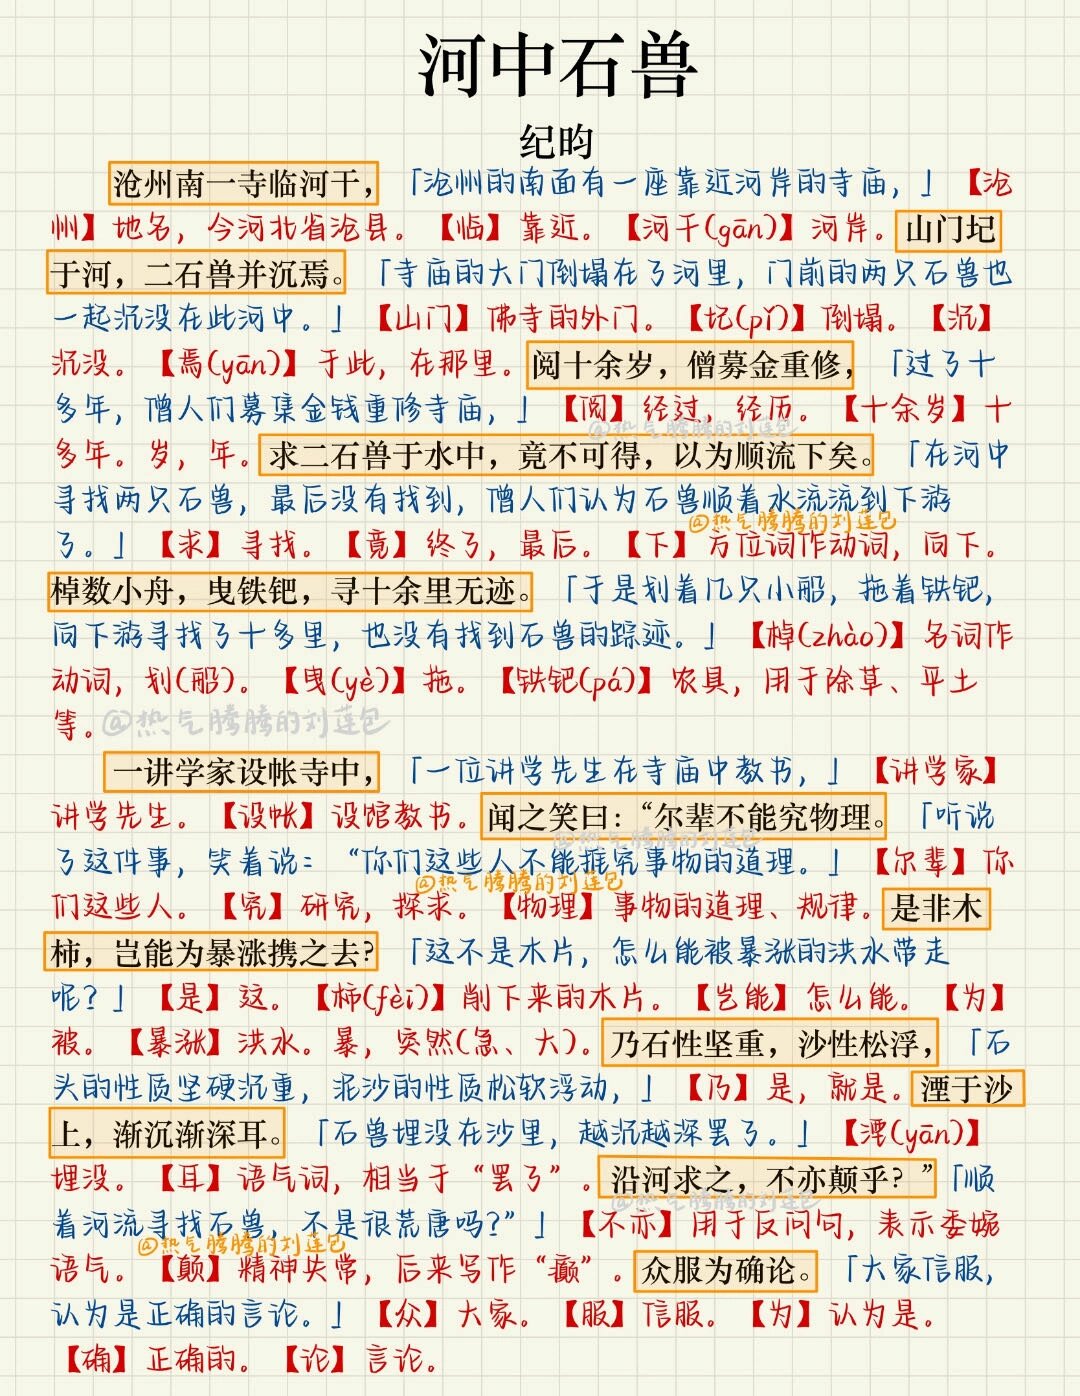 河中石兽
纪昀
沧州南一寺临河干，「沧州的南面有一座靠近河岸的寺庙，」【沧
州】地名，今河北省沧县。【临】靠近。【河干(gān)】河岸。山门圮
于河，二石兽并沉焉。「寺庙的大门倒塌在了河里，门前的两只石兽也
一起沉没在此河中。」【山门】佛寺的外门。【圮(pǐ)】倒塌。【沉】
沉没。【焉(yān)】于此，在那里。阅十余岁，僧募金重修，「过了十
多年，僧人们募集金钱重修寺庙，」【阅】经过，经历。【十余岁】十
@热气腾腾的刘莲包
多年。岁，年。求二石兽于水中，竟不可得，以为顺流下矣。「在河中
寻找两只石兽，最后没有找到，僧人们认为石兽顺着水流流到下游
@热气腾腾的刘莲包
了。」【求】寻找。【竟】终了，最后。【下】方位词作动词，向下。
棹数小舟，曳铁钯，寻十余里无迹。「于是划着几只小船，拖着铁钯，
向下游寻找了十多里，也没有找到石兽的踪迹。」【棹(zhào)】名词作
动词，划(船)。【曳(yè)】拖。【铁钯(pá)】农具，用于除草、平土
等。@热气腾腾的刘莲包
一讲学家设帐寺中，「一位讲学先生在寺庙中教书，」【讲学家】
讲学先生。【设帐】设馆教书。闻之笑曰：“尔辈不能究物理。「听说
@热气腾腾的刘莲包
了这件事，笑着说：“你们这些人不能推究事物的道理。」【尔辈】你
@热气腾腾的刘莲包
们这些人。【究】研究，探求。【物理】事物的道理、规律。是非木
杮，岂能为暴涨携之去？「这不是木片，怎么能被暴涨的洪水带走
呢？」【是】这。【杮(fèi)】削下来的木片。【岂能】怎么能。【为】
被。【暴涨】洪水。暴，突然(急、大)。乃石性坚重，沙性松浮，「石
头的性质坚硬沉重，泥沙的性质松软浮动，」【乃】是，就是。湮于沙
上，渐沉渐深耳。「石兽埋没在沙里，越沉越深罢了。」【湮(yān)】
埋没。【耳】语气词，相当于“罢了”。沿河求之，不亦颠乎？”「顺
@热气腾腾的刘莲包
着河流寻找石兽，不是很荒唐吗？”」【不亦】用于反问句，表示委婉
@热气腾腾的刘莲包
语气。【颠】精神失常，后来写作“癫”。众服为确论。「大家信服，
认为是正确的言论。」【众】大家。【服】信服。【为】认为是。
【确】正确的。【论】言论。